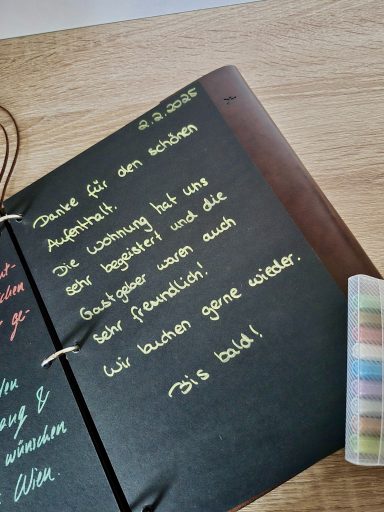 2.2.2025
Danke für den schönen
Aufenthalt.
Die Wohnung hat uns
sehr begeistert und die
Gastgeber waren auch
sehr freundlich!
Wir buchen gerne wieder.
Bis bald!
ge-
&
wünschen
Wien.